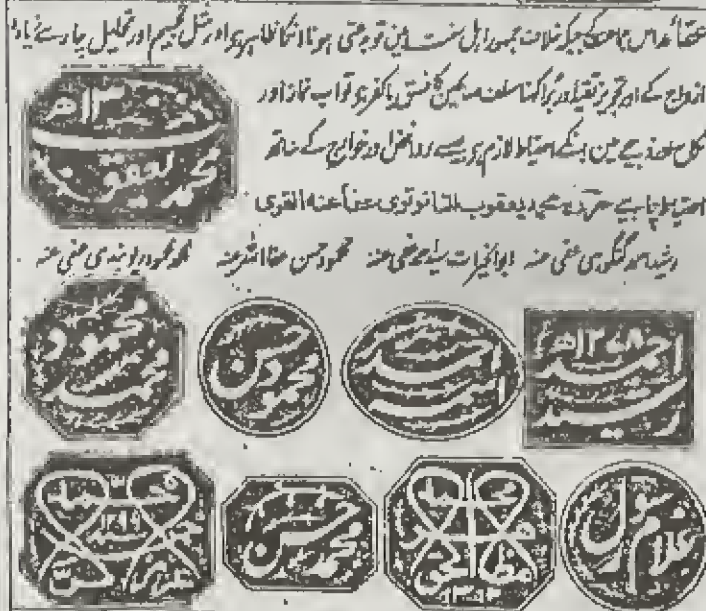 عقائد اس جماعت کے جبکہ خلاف جمہور اہل سنت ہین تو بدعتی ہونا انکا ظاہر ہے اور مثل تجسیم اور تحلیل چار سے زیادہ
ازواج کے اور تجویز تقیہ اور برا کہنا سلف صالحین کا فسق یا کفر ہے تو اب نماز اور
نکاح اور ذبیحے مین انکے احتیاط لازم ہے جیسے روافض اور خوارج کے ساتھ
احتیاط چاہیے حررہ محمد یعقوب النانوتوی عفا عنہ القوی
محمد یعقوب
رشید احمد گنگوہی عفی عنہ ابوالخیرات سید احمد عفی عنہ محمود حسن عفا اللہ عنہ محمد محمود دیوبندی عفی عنہ
رشید احمد ۱۲۷۸ھ
احمد
محمود حسن
محمد محمود
غلام رسول
محمد حسن
محمد